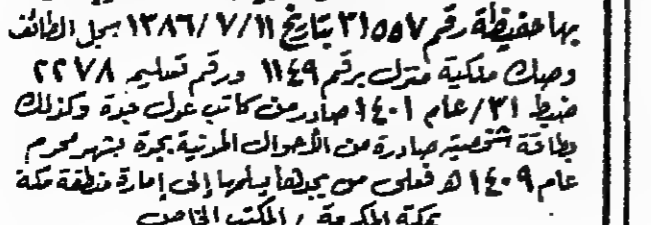 بها حفيظة رقم ٣١٥٥٧ بتاريخ ١٣٨٦/٧/١١ سجل الطائف
وصك ملكية منزل برقم ١١٤٩ ورقم تسليم ٢٢٧٨
ضبط ٣١/عام ١٤٠١ صادر من كاتب عدل جدة وكذلك
بطاقة شخصية صادرة من الأحوال المدنية بجدة بشهر محرم
عام ١٤٠٩ هـ فعلى من يجدها يسلمها إلى إمارة منطقة مكة
بمكة المكرمة / المكتب الخاص